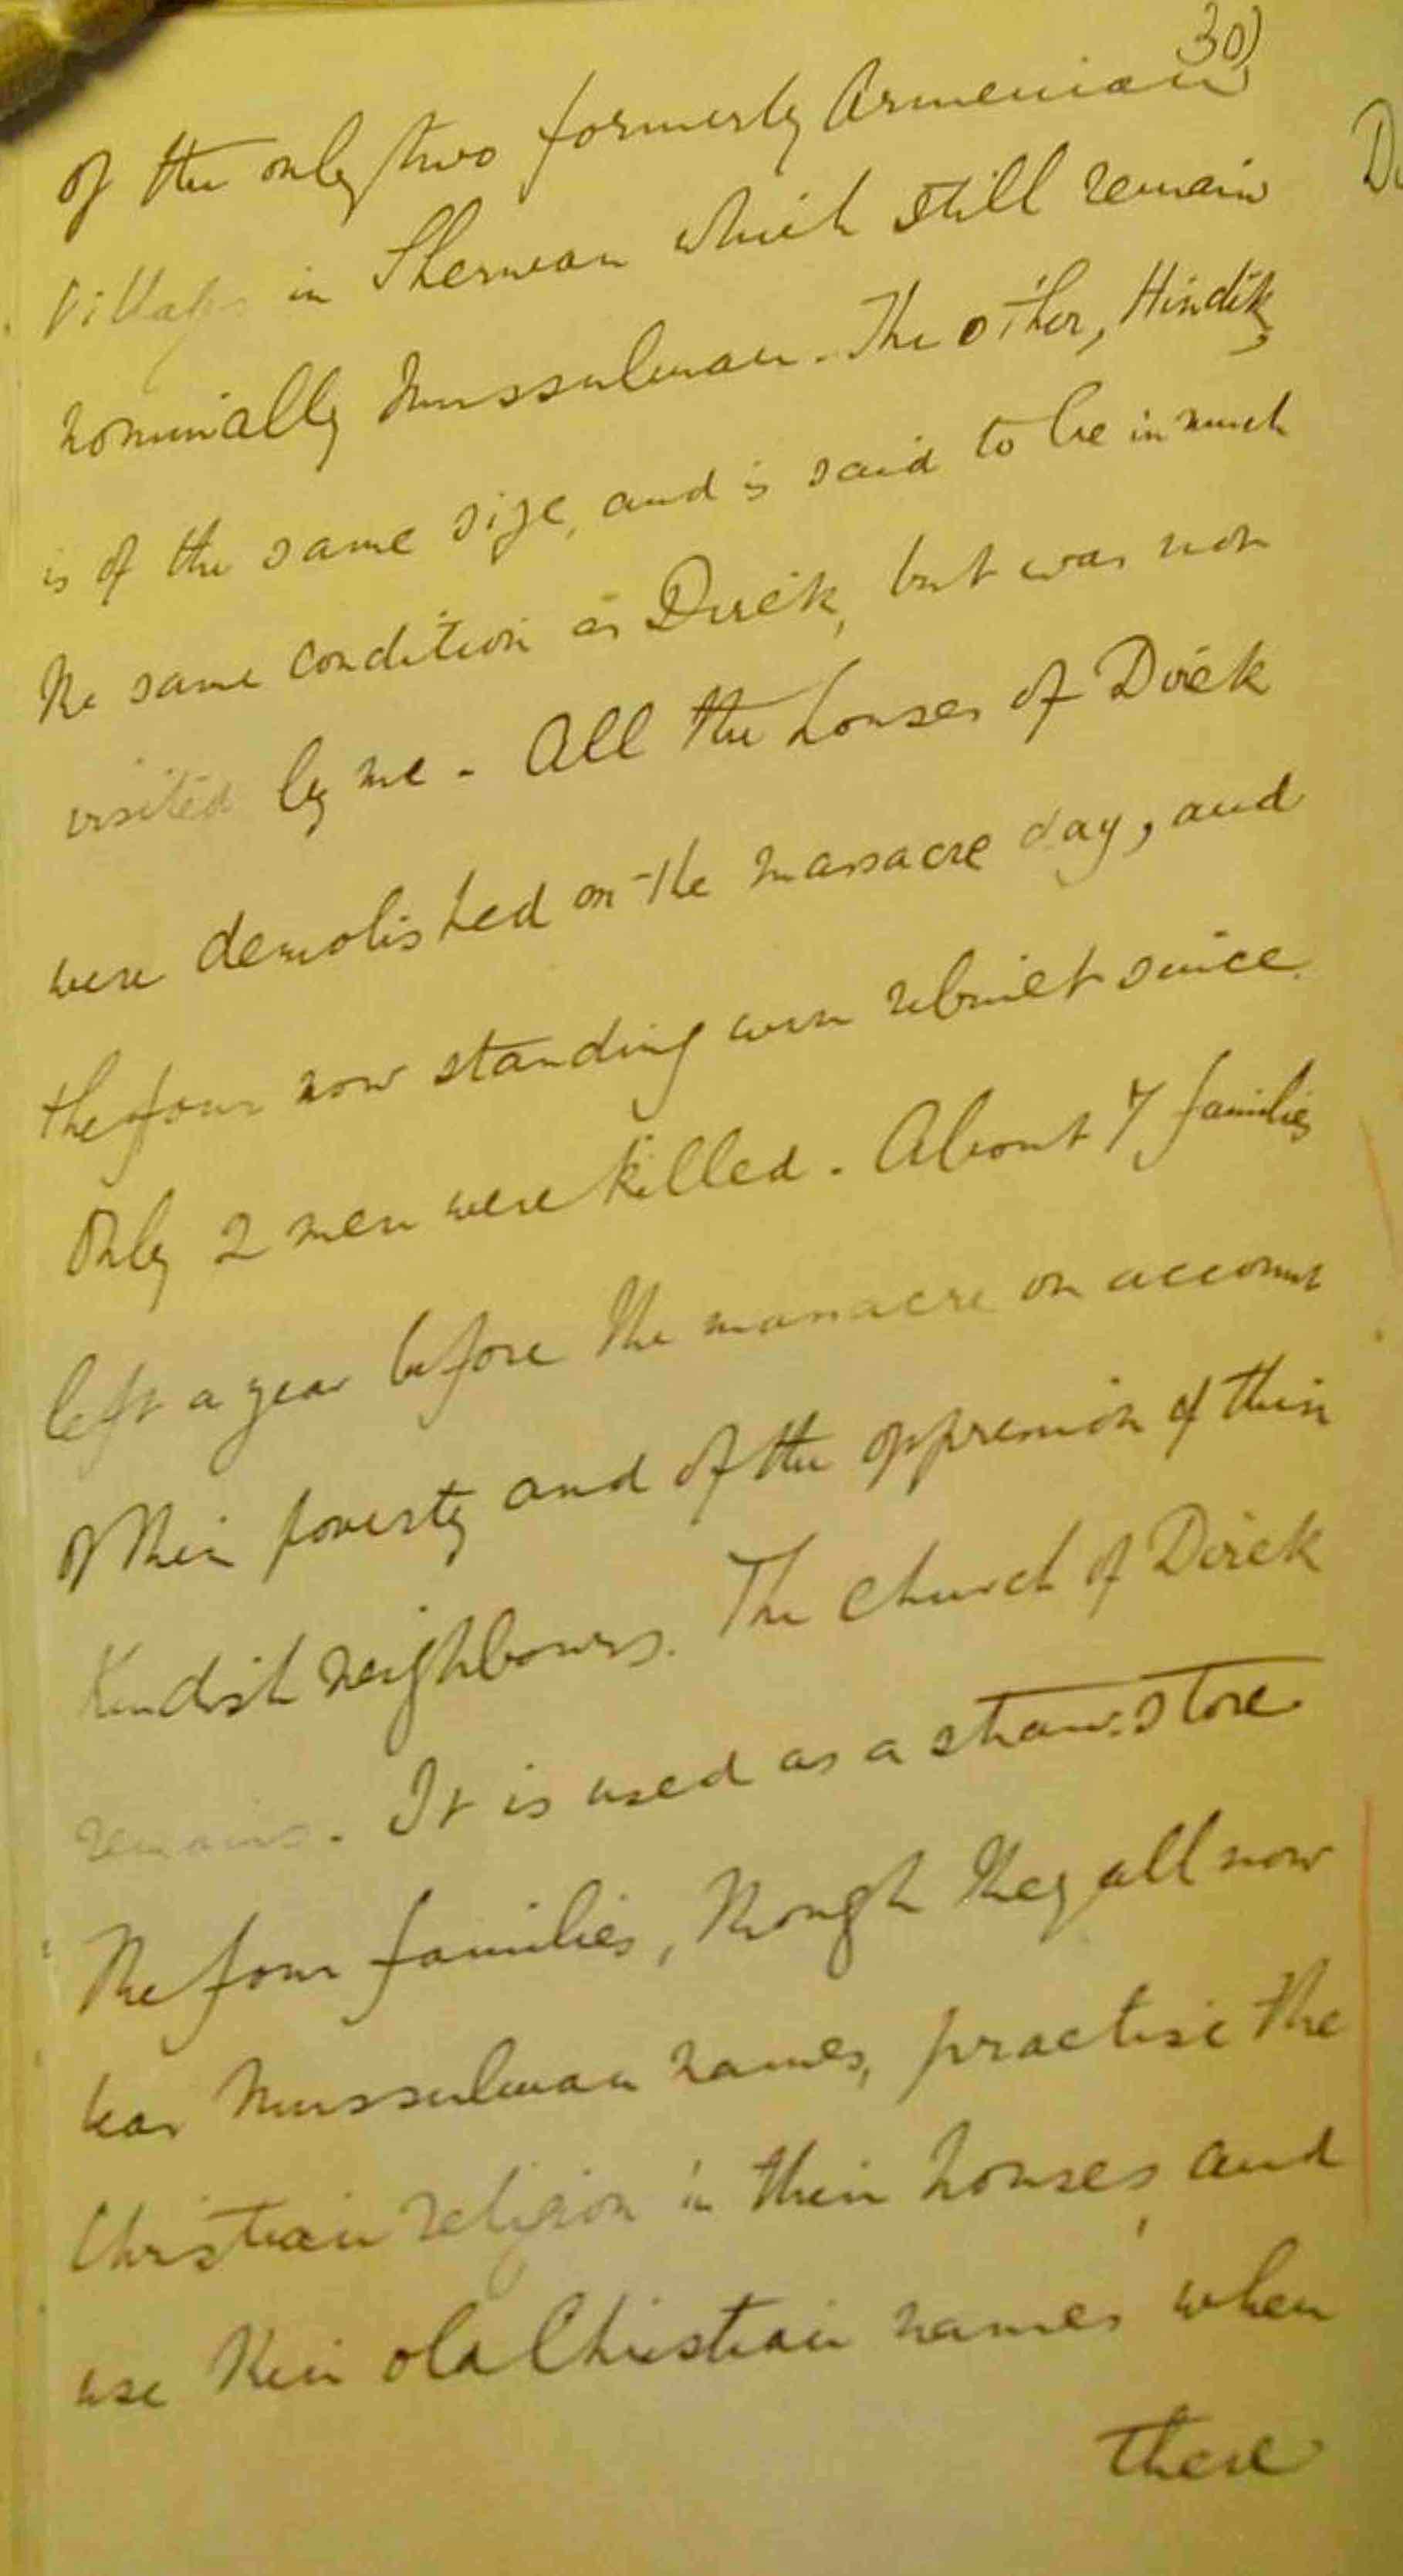 30)
of the only two formerly Armenian
villages in Sherwan which still remain
nominally Mussulman. The other, Hindik,
is of the same size, and is said to be in much
the same condition as Direk, but was not
visited by me - All the houses of Direk
were demolished on the massacre day, and
the four now standing were rebuilt since.
Only 2 men were killed. About 7 families
left a year before the massacre on account
of their poverty and of the oppression of their
Kurdish neighbours. The church of Direk
remains. It is used as a straw-store
The four families, though they all now
bear Mussulman names, practise the
Christian religion in their houses, and
use their old Christian names when
there